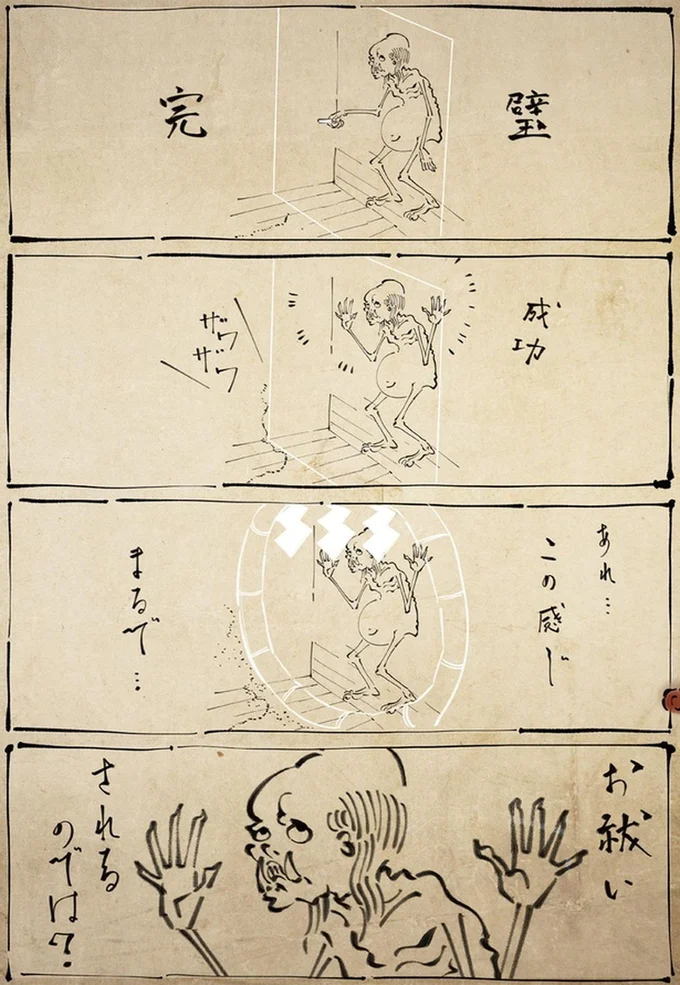 完璧
成功
ザワ
ザワ
あれ…
この感じ
まるで…
お祓い
される
のでは?